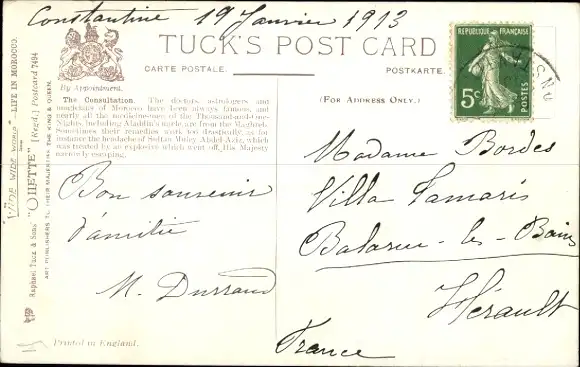 Constantine 19 Janvier 1913
TUCK'S POST CARD
CARTE POSTALE.
POSTKARTE.
By Appointment.
(FOR ADDRESS ONLY.)
REPUBLIQUE FRANÇAISE
5c
POSTES
The Consultation. The doctors, astrologers and
magicians of Morocco have been always famous, and
nearly all the medicine-men of the Thousand-and-one-
Nights, including Aladdin's uncle, are from the Maghreb.
Sometimes their remedies were too drastically, as for
instance the headache of Sultan Muley Abdel-Aziz, which
was treated by an explosive which went off, His Majesty
narrowly escaping.
Bon souvenir
d'amitié
M. Durrand
Madame Bordes
Villa Tamaris
Balaruc-les-Bains
Hérault
France
Printed in England.
"WIDE WIDE WORLD" LIFE IN MOROCCO.
Raphael Tuck & Sons' "OILETTE" [Regd.] Postcard 7494
ART PUBLISHERS TO THEIR MAJESTIES THE KING & QUEEN.